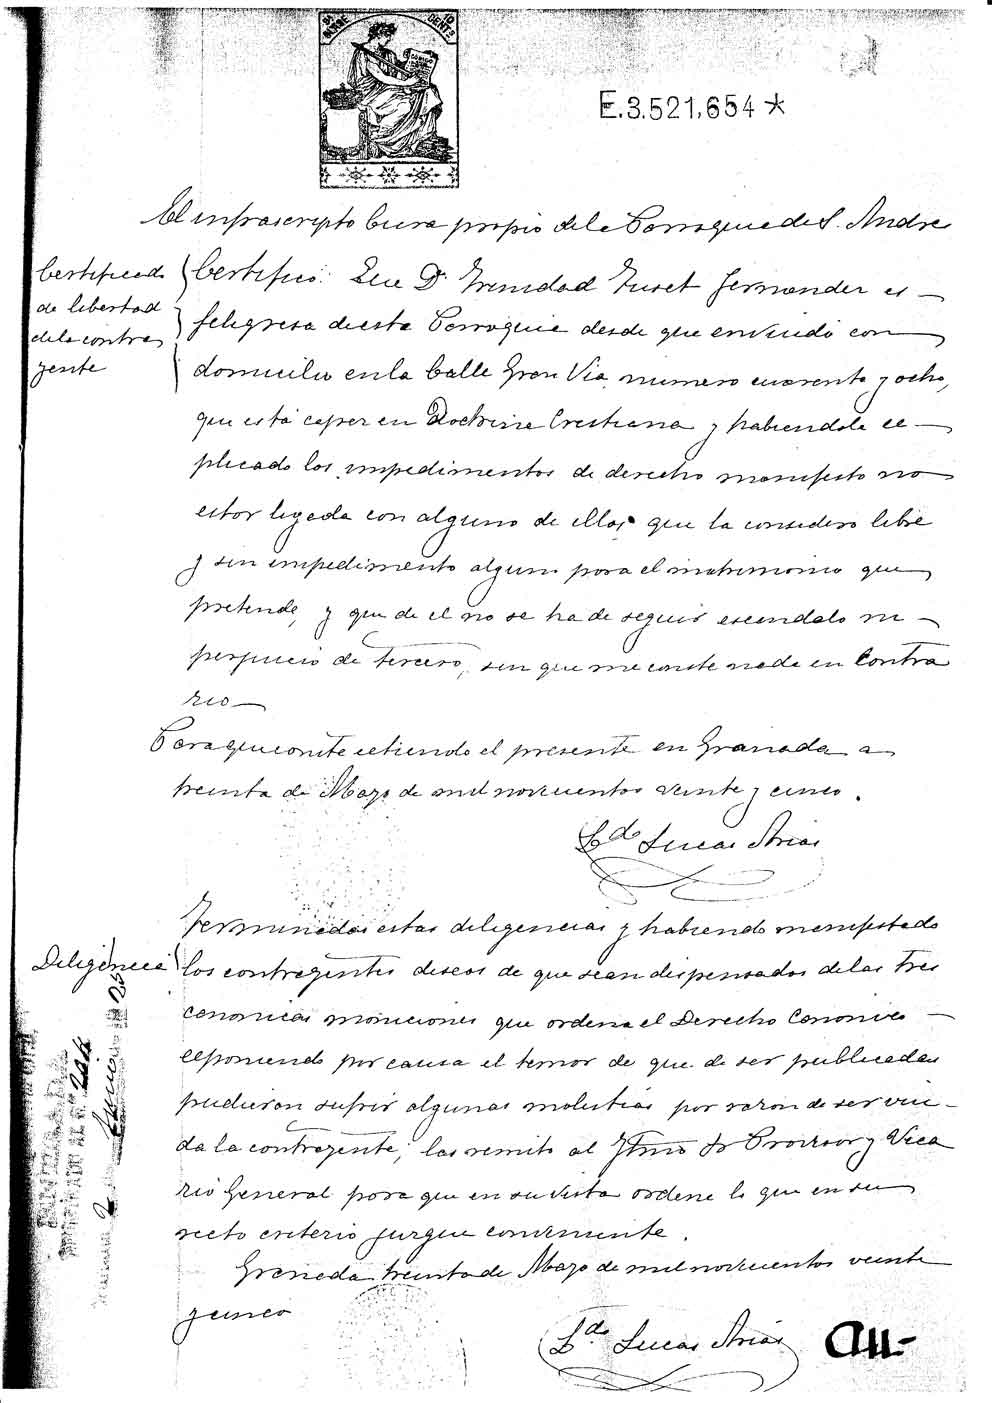 10 CENTS
E.3.521,654 *
El infrascripto Cura propio de la Parroquia de S. Andres
Certificado
de libertad
de la contra
yente
Certifico: Que Dª Trinidad Fuset Fernandez es
feligresa de esta Parroquia desde que enviudó con
domicilio en la Calle Gran Via, numero cuarenta y ocho,
que está capaz en Doctrina Cristiana y habiendole es
plicado los impedimentos de derecho manifesto no
estar ligada con alguno de ellos que la considero libre
y sin impedimento alguno para el matrimonio que
pretende, y que de el no se ha de seguir escandalo ni
perjuicio de tercero, sin que me conste nada en contra
rio
Para que conste estiendo el presente en Granada a
treinta de Mayo de mil novecientos veinte y cinco.
Ldo Lucas Arias
Diligencia
Terminadas estas diligencias y habiendo manifestado
los contrayentes deseos de que sean dispensados de las tres
canonicas moniciones que ordena el Derecho Canonico
esponiendo por causa el temor de que de ser publicadas
pudieran sufrir algunas molestias por razon de ser viu-
da la contrayente; las remito al Iltmo Sr Provisor y Vica
rio General para que en su vista ordene lo que en su
recto criterio juzgue conveniente.
Granada treinta de Mayo de mil novecientos veinte
y cinco
Ldo. Lucas Arias